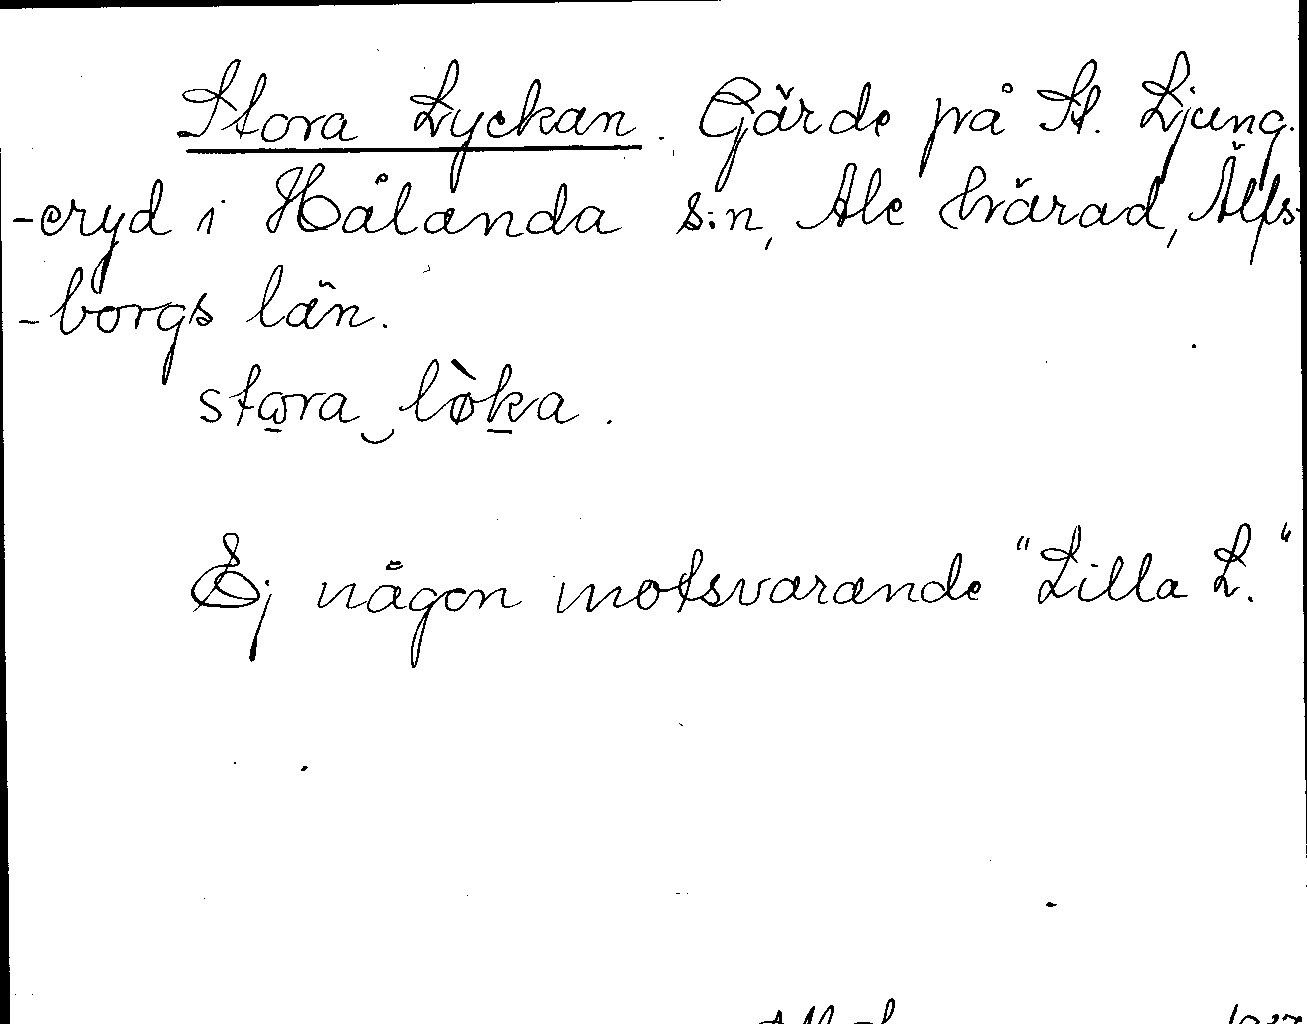 Stora Lyckan. Gärde på St. Ljung-
-eryd i Hålanda s:n, Ale härad, Älfs-
-borgs län.
stora‿lòka.
Ej någon motsvarande "Lilla L."